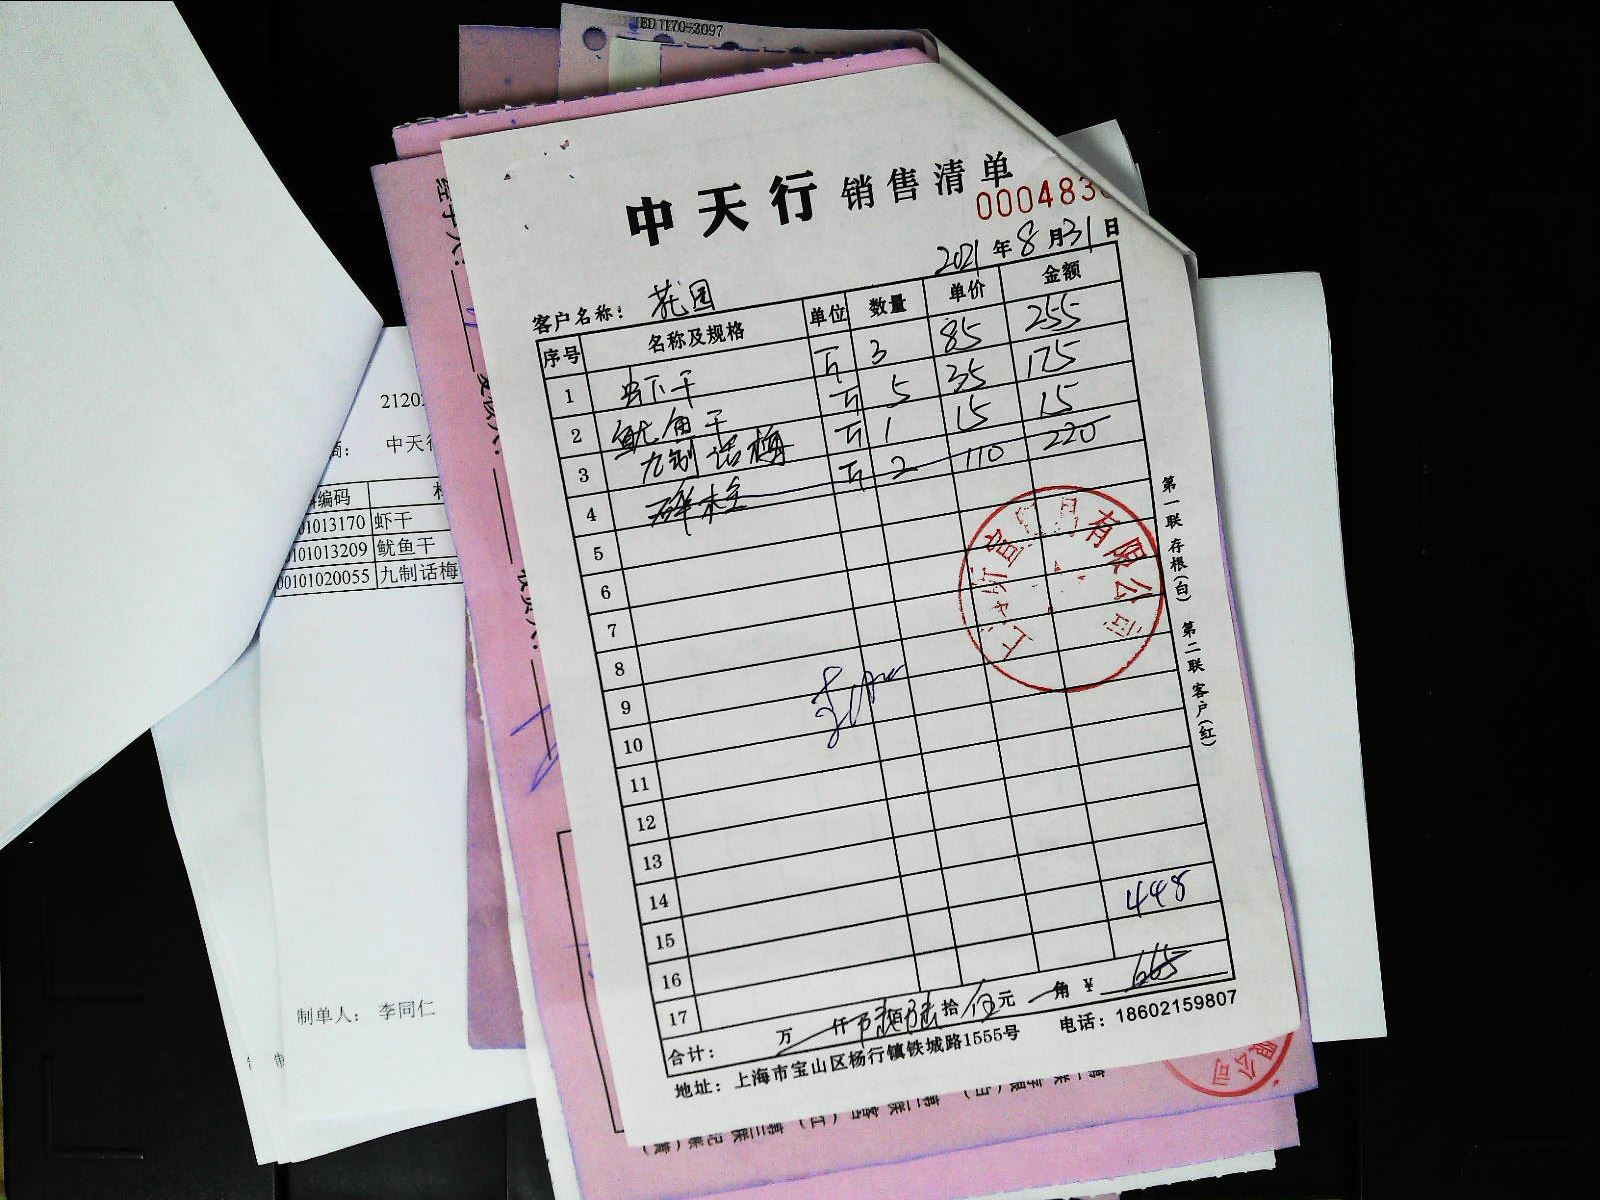 中天行 销售清单
0004830
2021年8月31日
客户名称： 花园
序号 名称及规格 单位 数量 单价 金额
1 虾干 斤 3 85 255
2 鱿鱼干 斤 5 35 175
3 九制话梅 斤 1 15 15
4 斤 2 110 220
5
6
7
8
9
10
11
12
13
14
15
16
17
448
合计： 万 仟 佰 拾 伍元 角 ¥ 665
地址：上海市宝山区杨行镇铁城路1555号 电话：18602159807
第一联 存根（白） 第二联 客户（红）
有限公司
2120
商： 中天行
编码
01013170 虾干
0101013209 鱿鱼干
00101020055 九制话梅
制单人： 李同仁
限公司